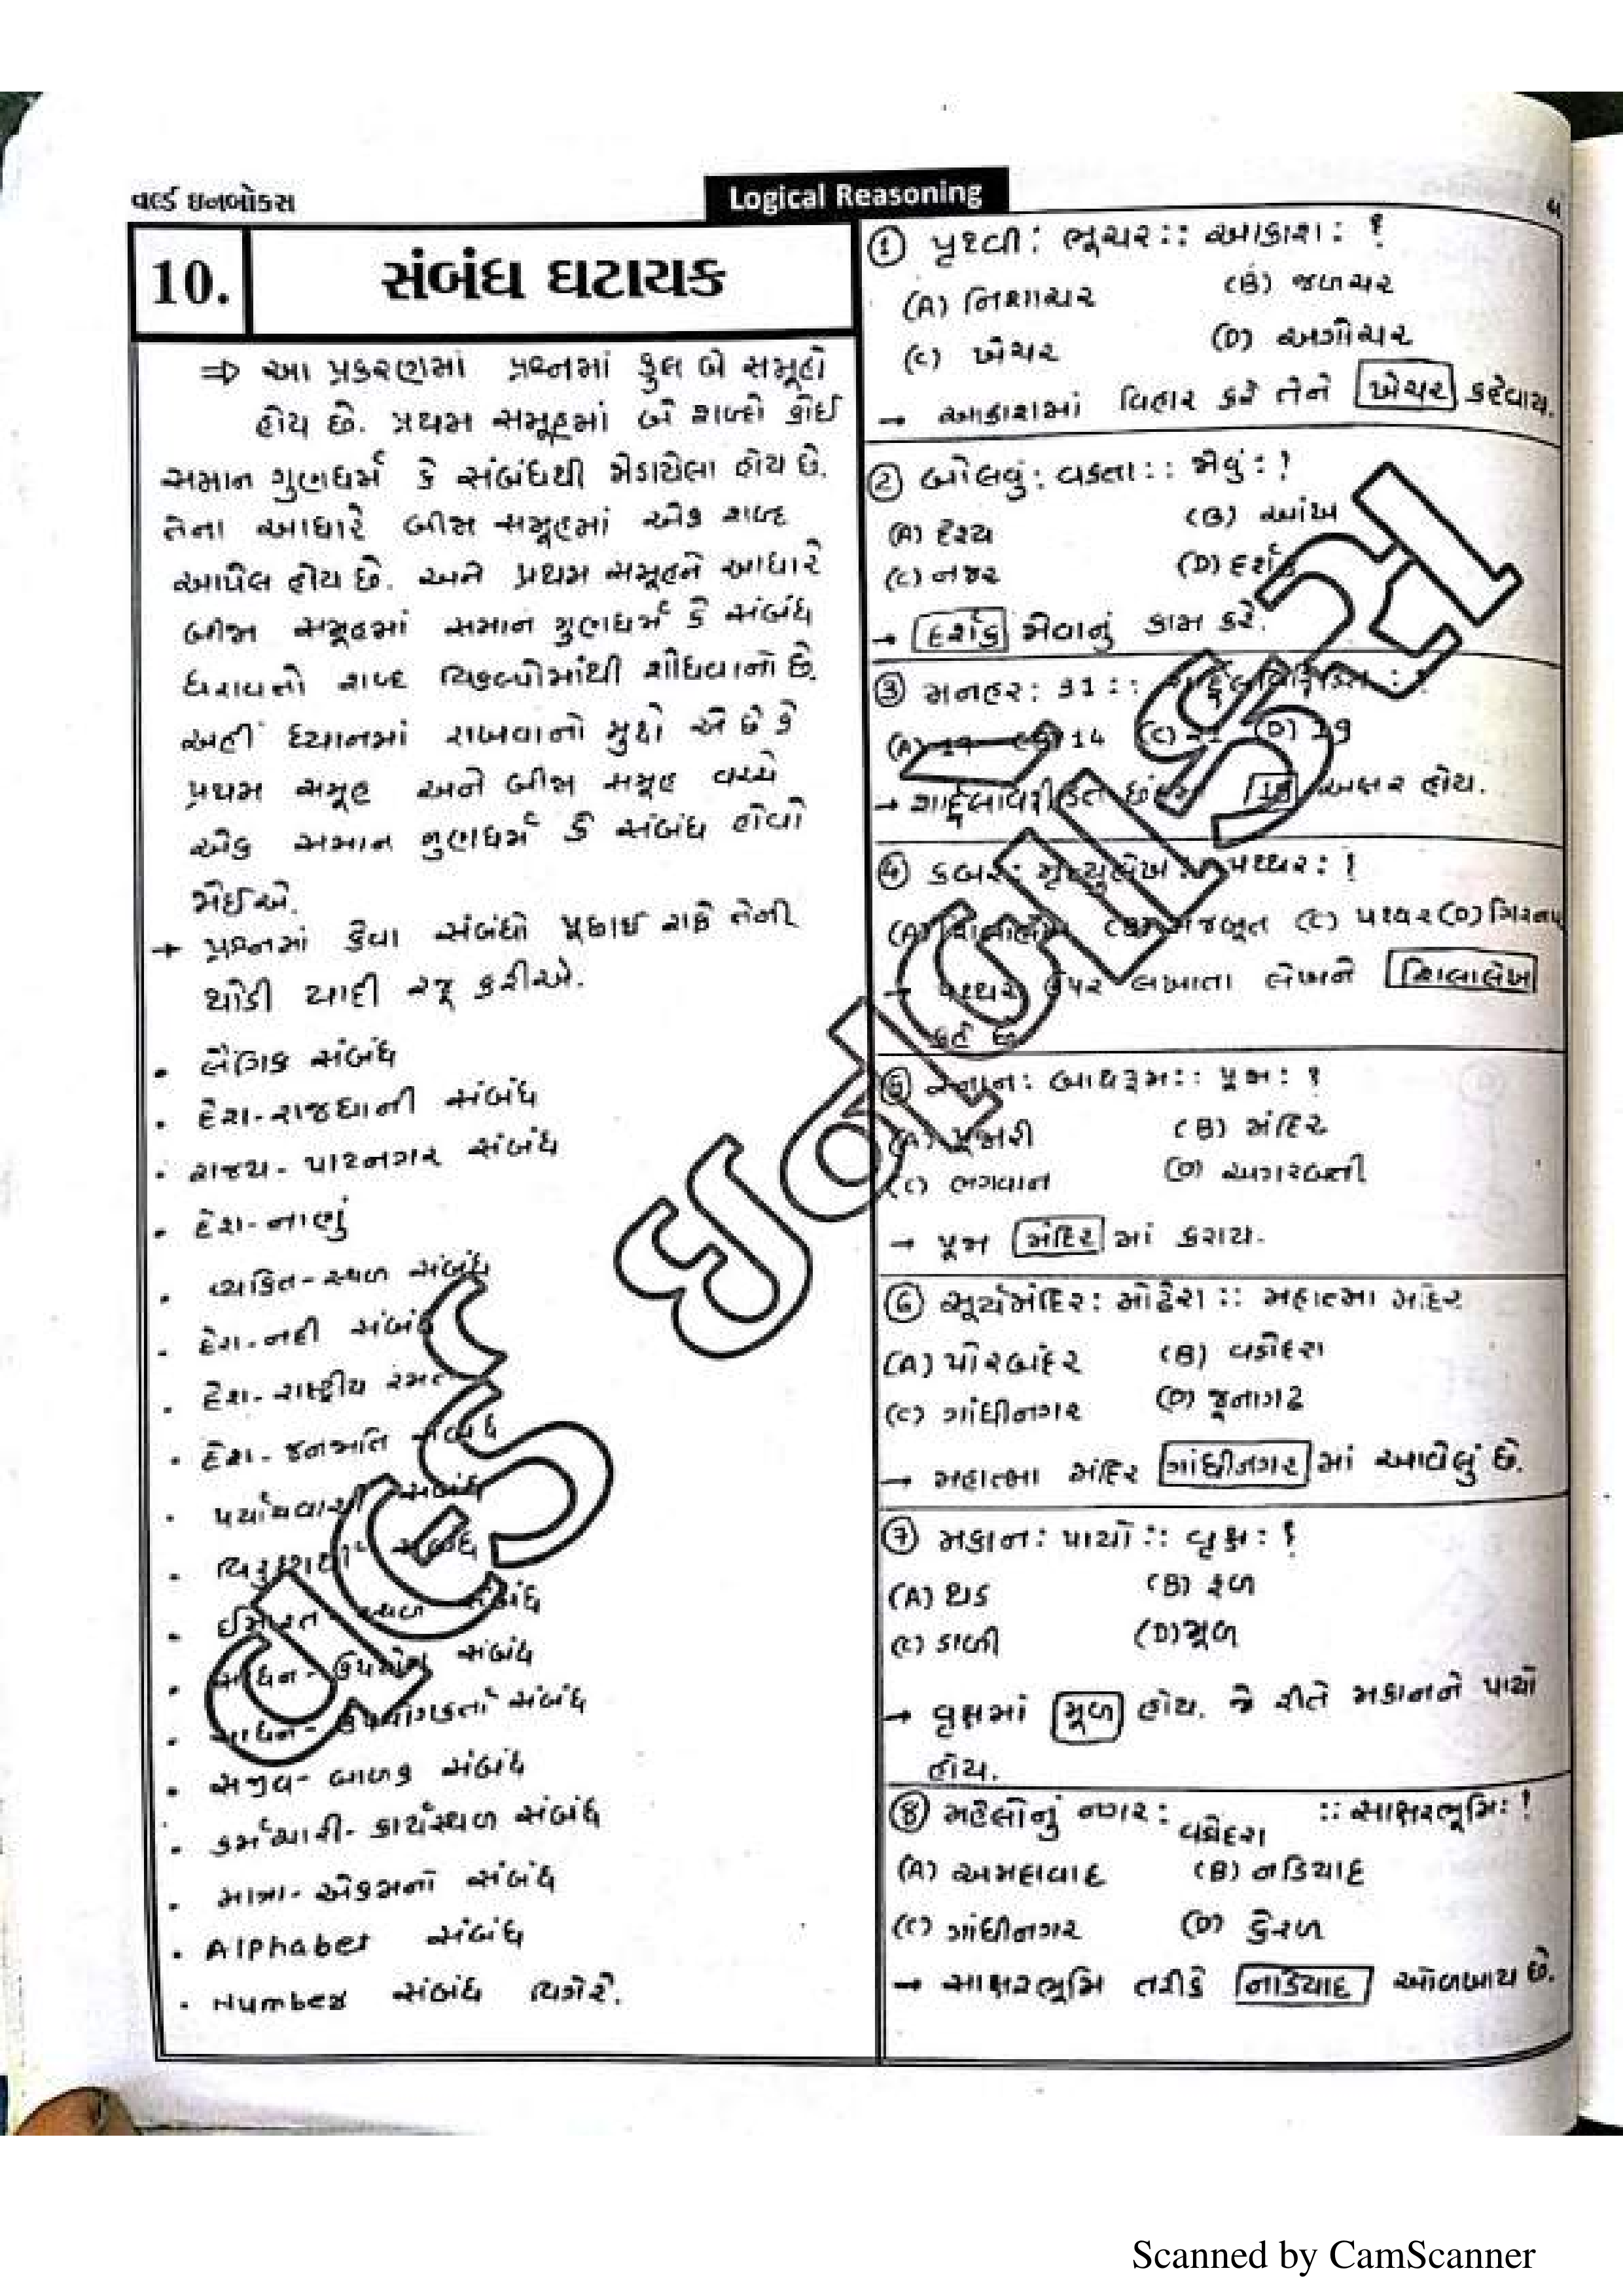 વર્લ્ડ ઇનબોક્સ
Logical Reasoning
૫
10.
સંબંધ ઘટાયક
⇒ આ પ્રકરણમાં પ્રશ્નમાં કુલ બે સમૂહો
હોય છે. પ્રથમ સમૂહમાં બે શબ્દો કોઈ
સમાન ગુણધર્મ કે સંબંધથી જોડાયેલા હોય છે.
તેના આધારે બીજા સમૂહમાં એક શબ્દ
આપેલ હોય છે. અને પ્રથમ સમૂહને આધારે
બીજા સમૂહમાં સમાન ગુણધર્મ કે સંબંધ
ધરાવતો શબ્દ વિકલ્પોમાંથી શોધવાનો છે.
અહીં ધ્યાનમાં રાખવાનો મુદ્દો એ છે કે
પ્રથમ સમૂહ અને બીજા સમૂહ વચ્ચે
એક સમાન ગુણધર્મ કે સંબંધ હોવો
જોઈએ.
→ પ્રશ્નમાં કેવા સંબંધો પૂછાઈ શકે તેની
થોડી યાદી રજૂ કરીએ.
• લૈંગિક સંબંધ
• દેશ-રાજધાની સંબંધ
• રાજ્ય- પાટનગર સંબંધ
• દેશ-નાણું
• વ્યક્તિ-સ્થળ સંબંધ
• દેશ-નદી સંબંધ
• દેશ-રાષ્ટ્રીય રમત
• દેશ-જનજાતિ સંબંધ
• પર્યાયવાચી સંબંધ
• વિરુદ્ધાર્થી સંબંધ
• ઈમારત-સ્થળ સંબંધ
• સાધન-ઉપયોગ સંબંધ
• સાધન-ઉપયોગકર્તા સંબંધ
• સજીવ-બાળક સંબંધ
• કર્મચારી-કાર્યસ્થળ સંબંધ
• માત્રા-એકમનો સંબંધ
• Alphabet સંબંધ
• Number સંબંધ વિગેરે.
① પૃથ્વી: ભૂચર:: આકાશ: ?
(A) નિશાચર (B) જળચર
(C) ખેચર (D) અગોચર
→ આકાશમાં વિહાર કરે તેને ખેચર કહેવાય.
② બોલવું: વક્તા:: જોવું: ?
(A) દ્રશ્ય (B) આંખ
(C) નજર (D) દર્શક
→ દર્શક જોવાનું કામ કરે.
③ મનહર: 31:: શાર્દૂલવિક્રીડિત: ?
(A) 19 (B) 14 (C) 21 (D) 29
→ શાર્દૂલવિક્રીડિત છંદમાં 19 અક્ષર હોય.
④ કબર: મૃત્યુલેખ:: પથ્થર: ?
(A) શિલાલેખ (B) મજબૂત (C) પથ્થર (D) ગિરનાર
→ પથ્થર ઉપર લખાતા લેખને શિલાલેખ
કહે છે.
⑤ સ્નાન: બાથરૂમ:: પૂજા: ?
(A) પૂજારી (B) મંદિર
(C) ભગવાન (D) અગરબત્તી
→ પૂજા મંદિર માં કરાય.
⑥ સૂર્યમંદિર: મોઢેરા:: મહાત્મા મંદિર
(A) પોરબંદર (B) વડોદરા
(C) ગાંધીનગર (D) જૂનાગઢ
→ મહાત્મા મંદિર ગાંધીનગર માં આવેલું છે.
⑦ મકાન: પાયો:: વૃક્ષ: ?
(A) થડ (B) ફળ
(C) ડાળી (D) મૂળ
→ વૃક્ષમાં મૂળ હોય. જે રીતે મકાનને પાયો
હોય.
⑧ મહેલોનું નગર: વડોદરા :: સાક્ષરભૂમિ: ?
(A) અમદાવાદ (B) નડિયાદ
(C) ગાંધીનગર (D) કેરળ
→ સાક્ષરભૂમિ તરીકે નડિયાદ ઓળખાય છે.
Scanned by CamScanner